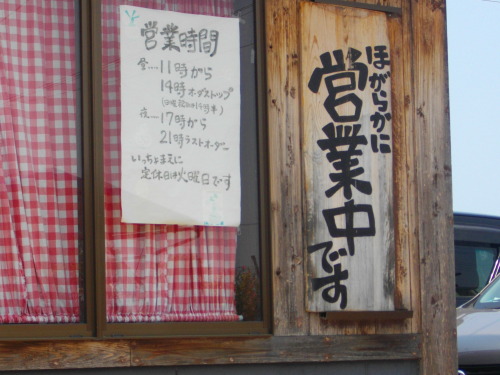 営業時間
昼…11時から
14時オーダーストップ
夜…17時から
21時ラストオーダー
いっちょまえに
定休日は火曜日です
ほがらかに
営業中
です